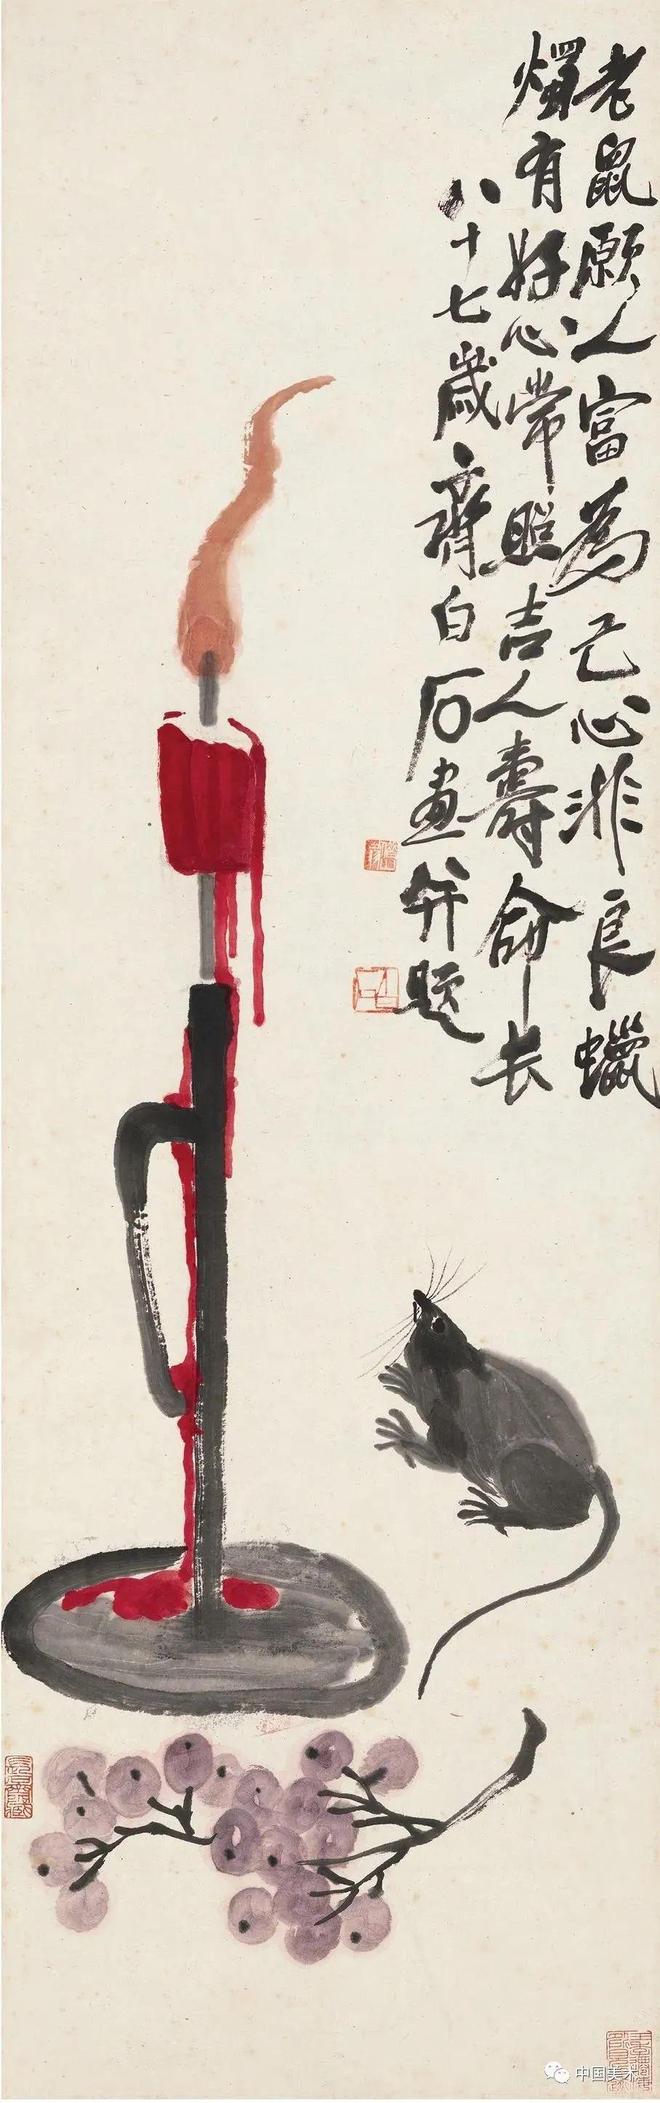 老鼠願人富為己心非良蠟
燭有好心常照吉人壽命长
八十七歲齊白石畫并題
中国美术